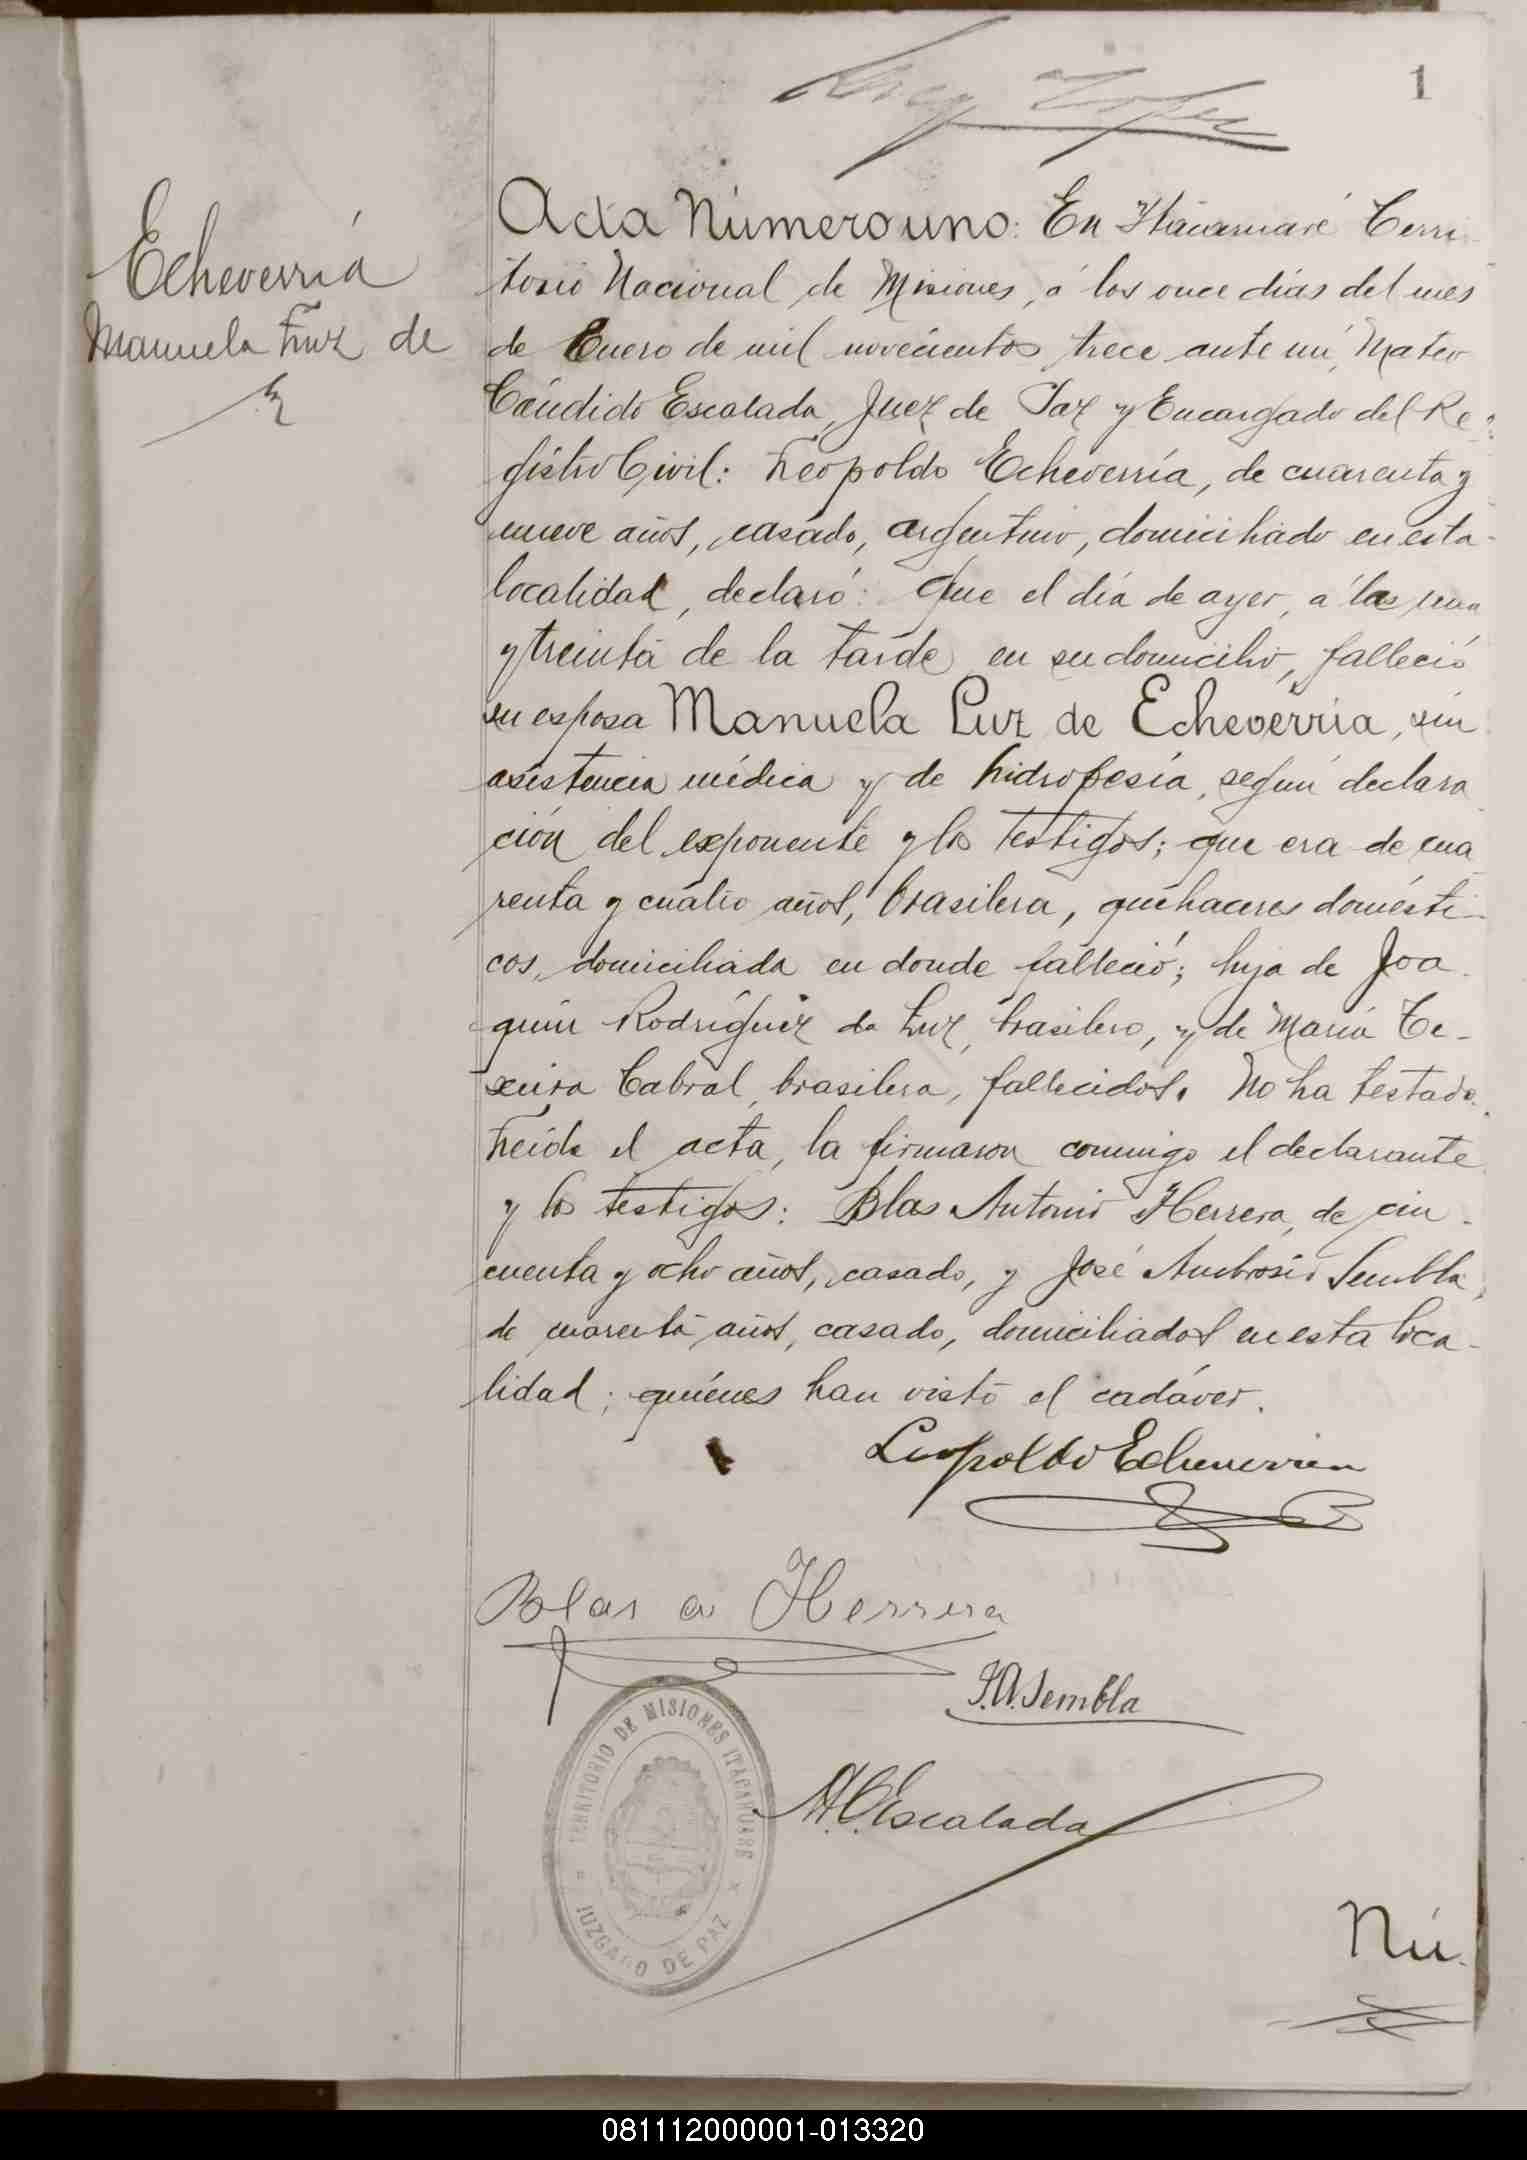 1
Echeverría
Manuela Luz de
Acta Número uno: En Itacaruaré Terri-
torio Nacional de Misiones, á los once días del mes
de Enero de mil novecientos trece ante mí, Mateo
Cándido Escalada, Juez de Paz y Encargado del Re-
gistro Civil: Leopoldo Echeverría, de cuarenta y
nueve años, casado, argentino, domiciliado en esta
localidad, declaró: Que el día de ayer, á las una
y treinta de la tarde en su domicilio, falleció
su esposa Manuela Luz de Echeverría, sin
asistencia médica y de hidropesía, según declara
ción del exponente y los testigos; que era de cua
renta y cuatro años, brasilera, quehaceres domésti-
cos, domiciliada en donde falleció; hija de Joa-
quin Rodríguez da Luz, brasilero, y de María Te-
xeira Cabral, brasilera, fallecidos. No ha testado.
Leída el acta, la firmaron conmigo el declarante
y los testigos: Blas Antonio Herrera, de cin-
cuenta y ocho años, casado, y José Ambrosio Sembla,
de cuarenta años, casado, domiciliados en esta loca-
lidad; quiénes han visto el cadáver.
Leopoldo Echeverria
Blas A Herrera
J. A. Sembla
M. C. Escalada
TERRITORIO DE MISIONES ITACARUARE
JUZGADO DE PAZ
Nú-
081112000001-013320